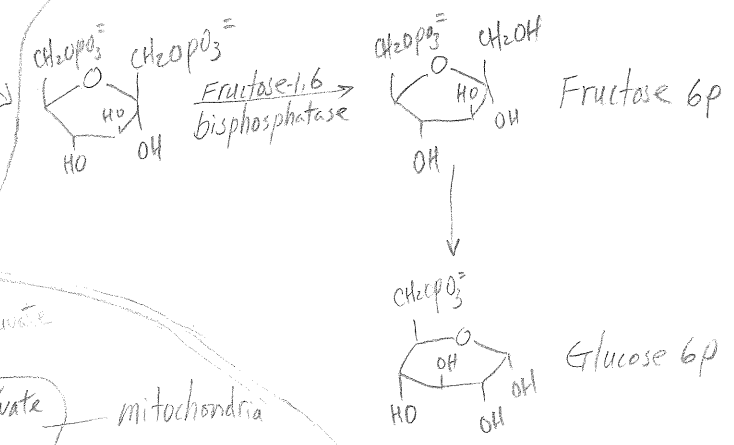 CH₂OPO₃⁼ CH₂OPO₃⁼
O
HO
HO OH
Fructose-1,6
bisphosphatase
CH₂OPO₃⁼ CH₂OH
O
HO
OH
OH
Fructose 6p
CH₂OPO₃⁼
O
OH
HO OH OH
Glucose 6p
mitochondria